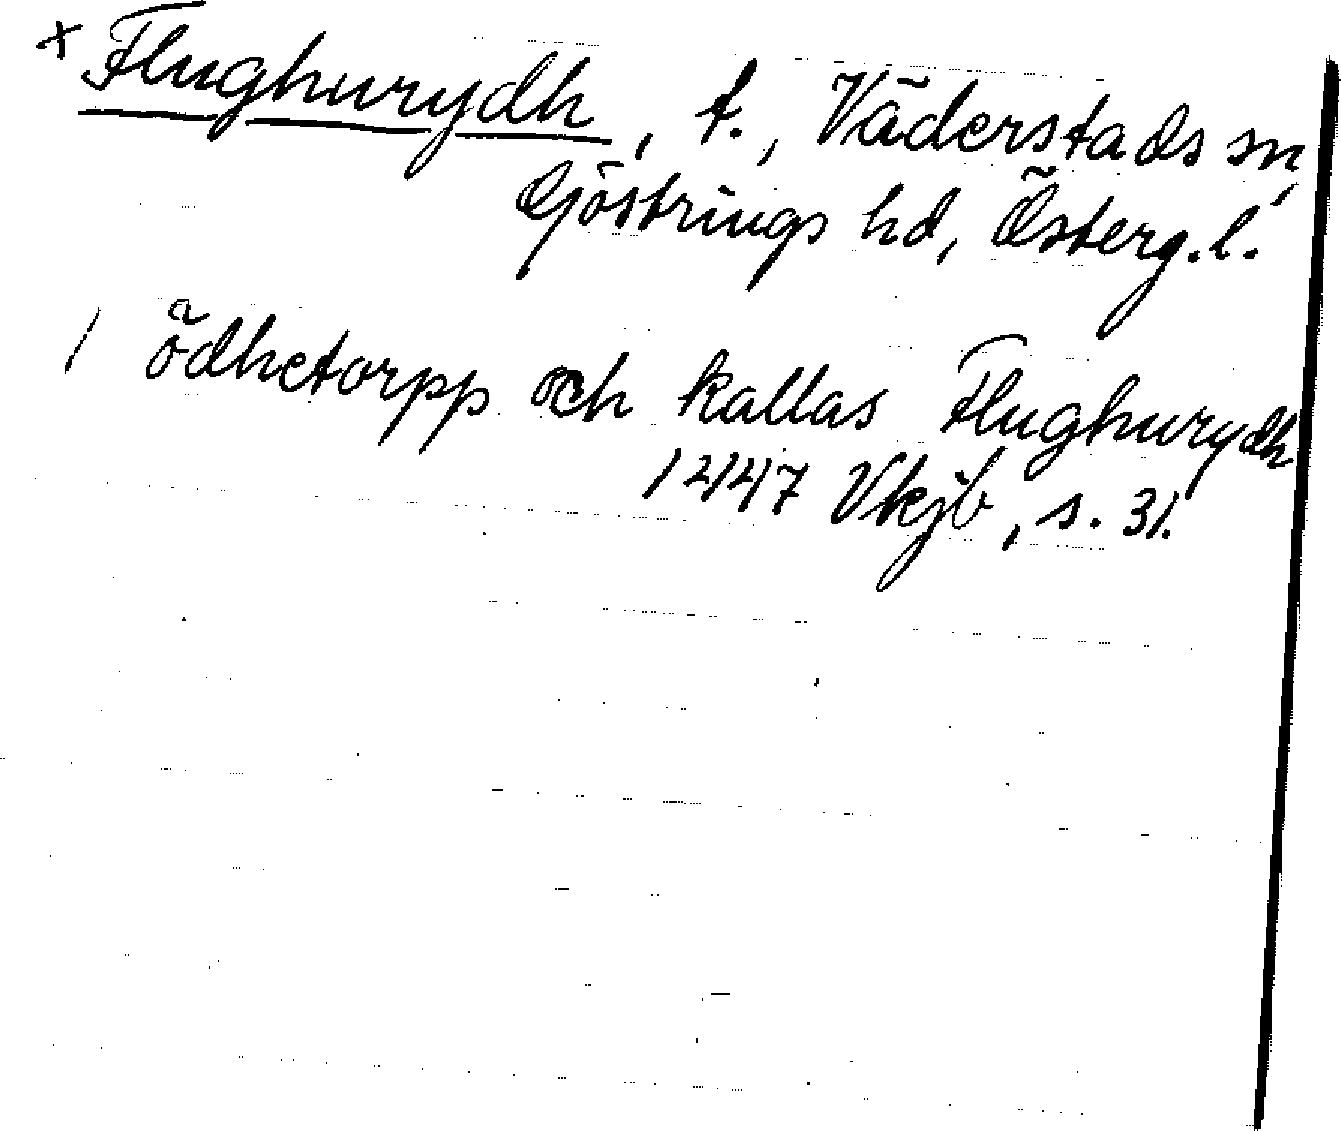 + Flughurydh, t., Väderstads sn,
Göstrings hd, Österg. l.
1 ödhetorpp och kallas Flughurydh
1447 Vkjb, s. 31.